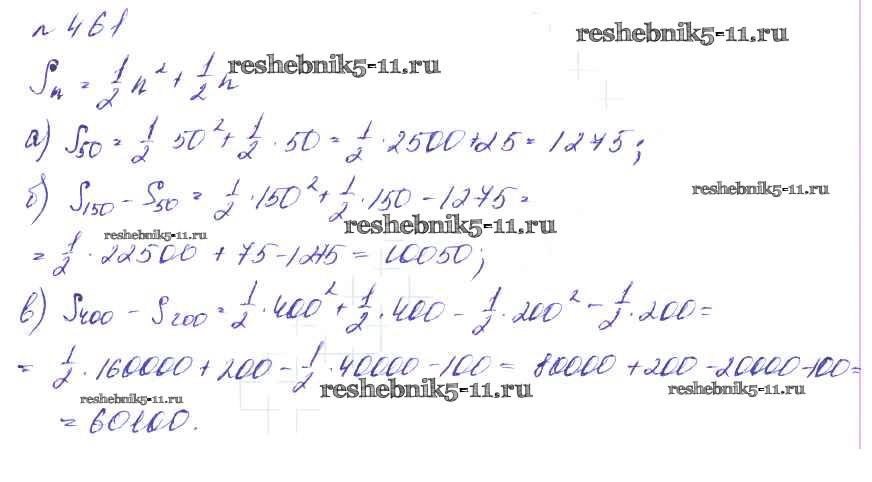 № 461
reshebnik5-11.ru
Sₙ = 1/2 n² + 1/2 n
reshebnik5-11.ru
а) S₅₀ = 1/2 50² + 1/2 · 50 = 1/2 · 2500 + 25 = 1275;
б) S₁₅₀ - S₅₀ = 1/2 · 150² + 1/2 · 150 - 1275 =
reshebnik5-11.ru
reshebnik5-11.ru
reshebnik5-11.ru
= 1/2 · 22500 + 75 - 1275 = 10050;
в) S₄₀₀ - S₂₀₀ = 1/2 · 400² + 1/2 · 400 - 1/2 · 200² - 1/2 · 200 =
= 1/2 · 160000 + 200 - 1/2 · 40000 - 100 = 80000 + 200 - 20000 - 100 =
reshebnik5-11.ru
reshebnik5-11.ru
reshebnik5-11.ru
= 60100.